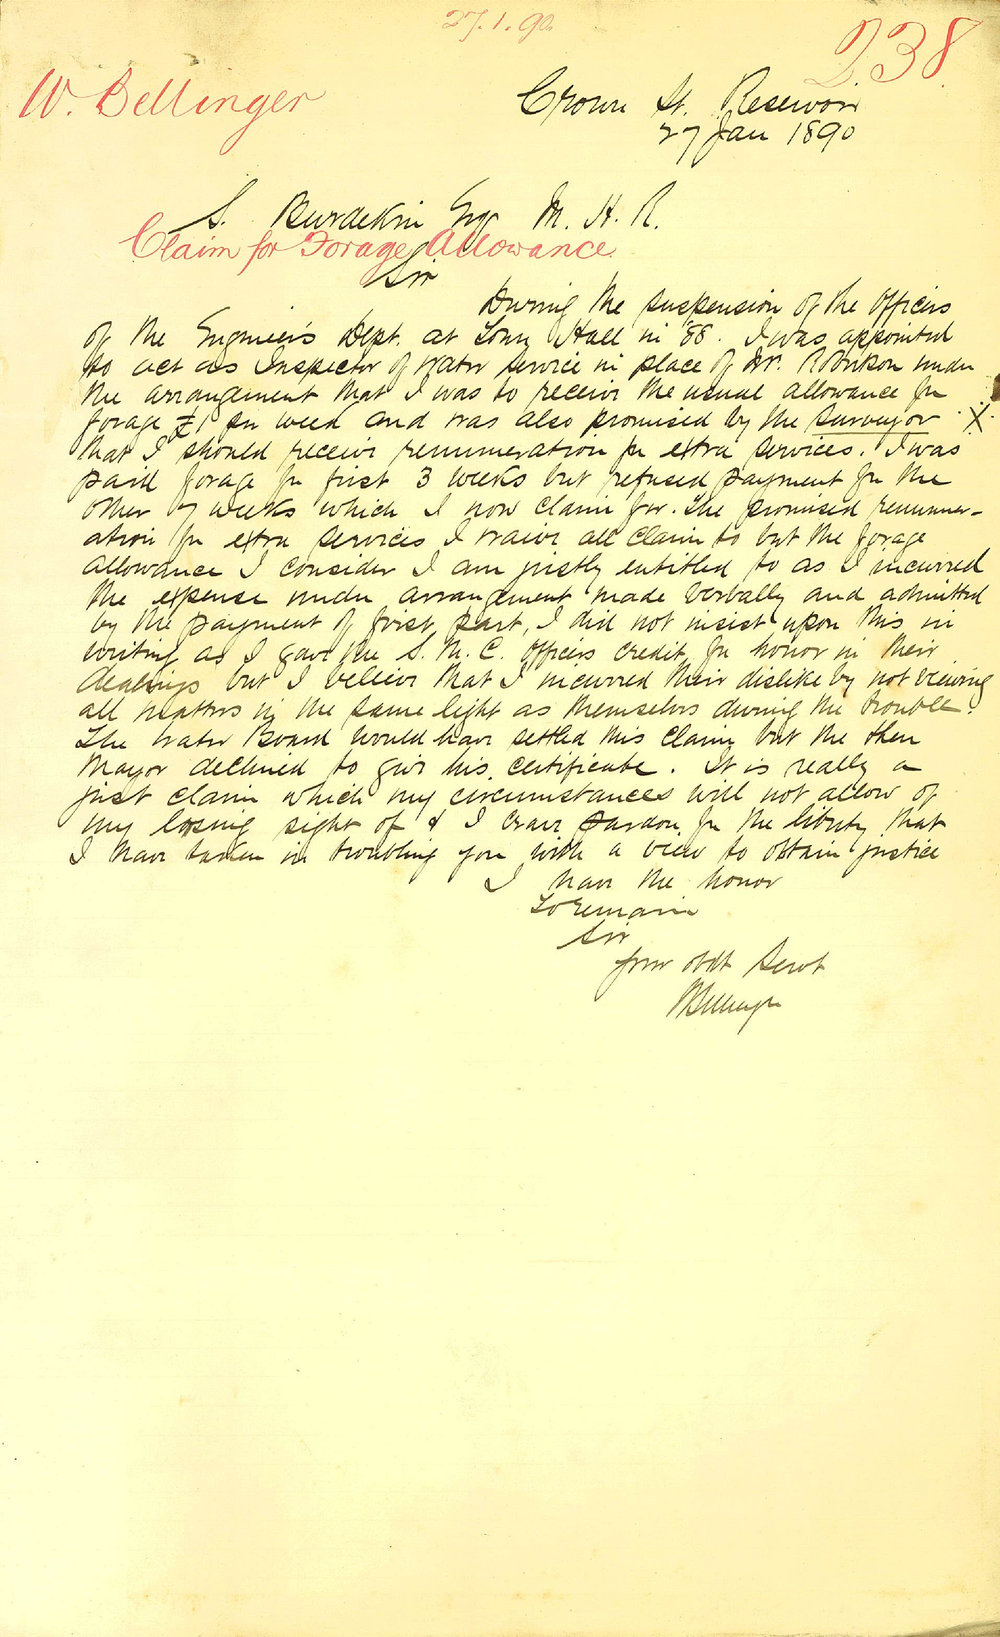 27.1.90
238
W. Bellinger
Crown St. Reservoir
27 Jan 1890
S. Burdekin Esqr M. H. R.
Claim for Forage Allowance.
Sir
During the suspension of the Officers
of the Engineers Dept. at Town Hall in '88. I was appointed
to act as Inspector of Water Service in place of Mr. Robinson under
the arrangement that I was to receive the usual allowance for
forage £1 per week and was also promised by the Surveyor X
that I should receive remuneration for extra services. I was
paid forage for first 3 weeks but refused payment for the
other 7 weeks which I now claim for. The promised remuner-
ation for extra services I waive all claim to but the forage
allowance I consider I am justly entitled to as I incurred
the expense under arrangement made verbally and admitted
by the payment of first part, I did not insist upon this in
writing as I gave the S. M. C. Officers credit for honor in their
dealings but I believe that I incurred their dislike by not viewing
all matters in the same light as themselves during the trouble.
The Water Board would have settled this claim but the then
Mayor declined to give his certificate. It is really a
just claim which my circumstances will not allow of
my losing sight of & I crave pardon for the liberty that
I have taken in troubling you with a view to obtain justice
I have the honor
To remain
Sir
your obdt Servt
WBellinger